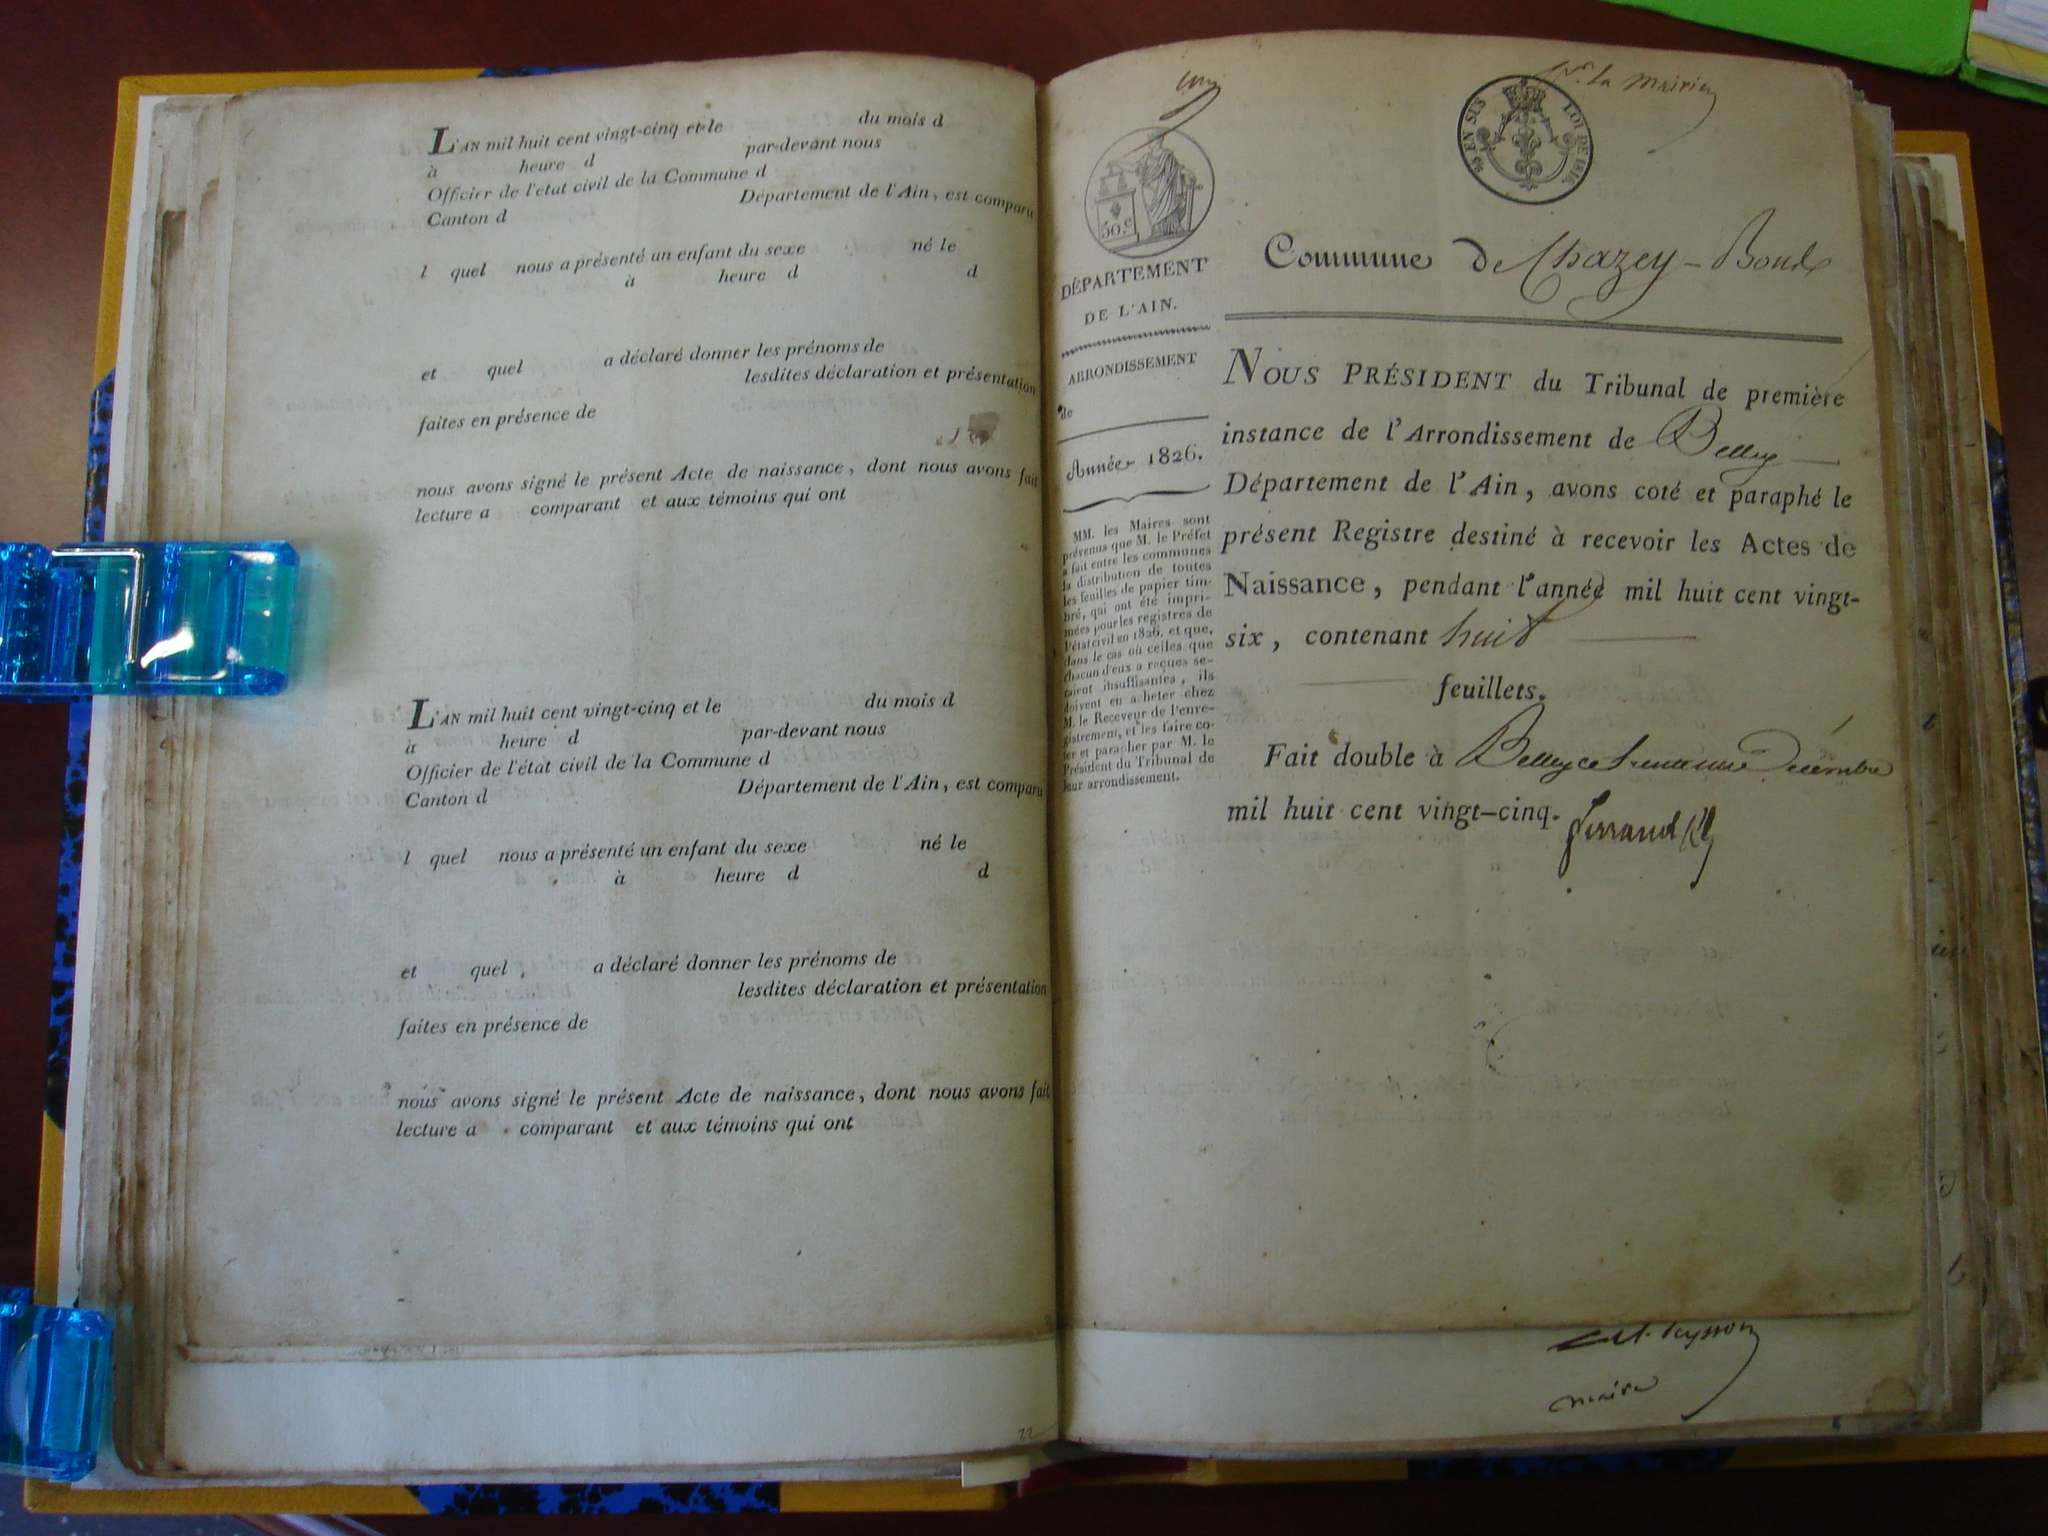 L'AN mil huit cent vingt-cinq et le du mois d
à heure d par-devant nous
Officier de l'état civil de la Commune d
Canton d Département de l'Ain, est comparu
l quel nous a présenté un enfant du sexe né le
à heure d d
et quel a déclaré donner les prénoms de
lesdites déclaration et présentation
faites en présence de
nous avons signé le présent Acte de naissance, dont nous avons fait
lecture a comparant et aux témoins qui ont
L'AN mil huit cent vingt-cinq et le du mois d
à heure d par-devant nous
Officier de l'état civil de la Commune d
Canton d Département de l'Ain, est comparu
l quel nous a présenté un enfant du sexe né le
à heure d d
et quel a déclaré donner les prénoms de
lesdites déclaration et présentation
faites en présence de
nous avons signé le présent Acte de naissance, dont nous avons fait
lecture a comparant et aux témoins qui ont
22
La mairie
EN SUS LOI DE 1816.
50.c
DÉPARTEMENT
DE L'AIN.
ARRONDISSEMENT
de
Année 1826.
MM. les Maires sont
prévenus que M. le Préfet
a fait entre les communes
la distribution de toutes
les feuilles de papier tim-
bré, qui ont été impri-
mées pour les registres de
l'état civil en 1826, et que,
dans le cas où celles que
chacun d'eux a reçues se-
raient insuffisantes, ils
doivent en acheter chez
M. le Receveur de l'enre-
gistrement, et les faire co-
ter et parapher par M. le
Président du Tribunal de
leur arrondissement.
Commune de Chazey-Bons
NOUS PRÉSIDENT du Tribunal de première
instance de l'Arrondissement de Belley
Département de l'Ain, avons coté et paraphé le
présent Registre destiné à recevoir les Actes de
Naissance, pendant l'année mil huit cent vingt-
six, contenant huit
feuillets.
Fait double à Belley ce trente un Décembre
mil huit cent vingt-cinq.
maire